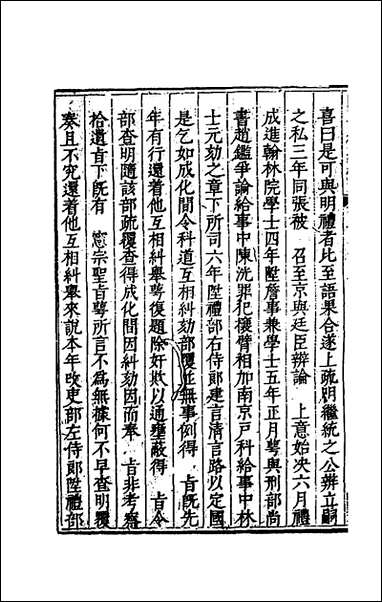 喜曰是可與明禮者比至語果合遂上疏明繼統之公辨立嗣
之私三年同張被　召至京與廷臣辨論　上意始决六月禮
成進翰林院學士四年陞詹事兼學士五年正月萼與刑部尚
書趙鑑爭論給事中陳洸罪犯攘臂相加南京戸科給事中林
士元劾之章下所司六年陞禮部右侍郎建言清言路以定國
是乞如成化間令科道互相糾劾部覆並無事例得　旨旣先
年有行還着他互相糾舉萼復題除奸欺以通壅蔽得　旨令
部查明隨該部疏覆查得成化間因糾劾因而奉　旨非考察
拾遺旨下旣有　憲宗聖旨萼所言不為無據何不早查明覆
奏且不究還着他互相糾舉來說本年改吏部左侍郎陞禮部